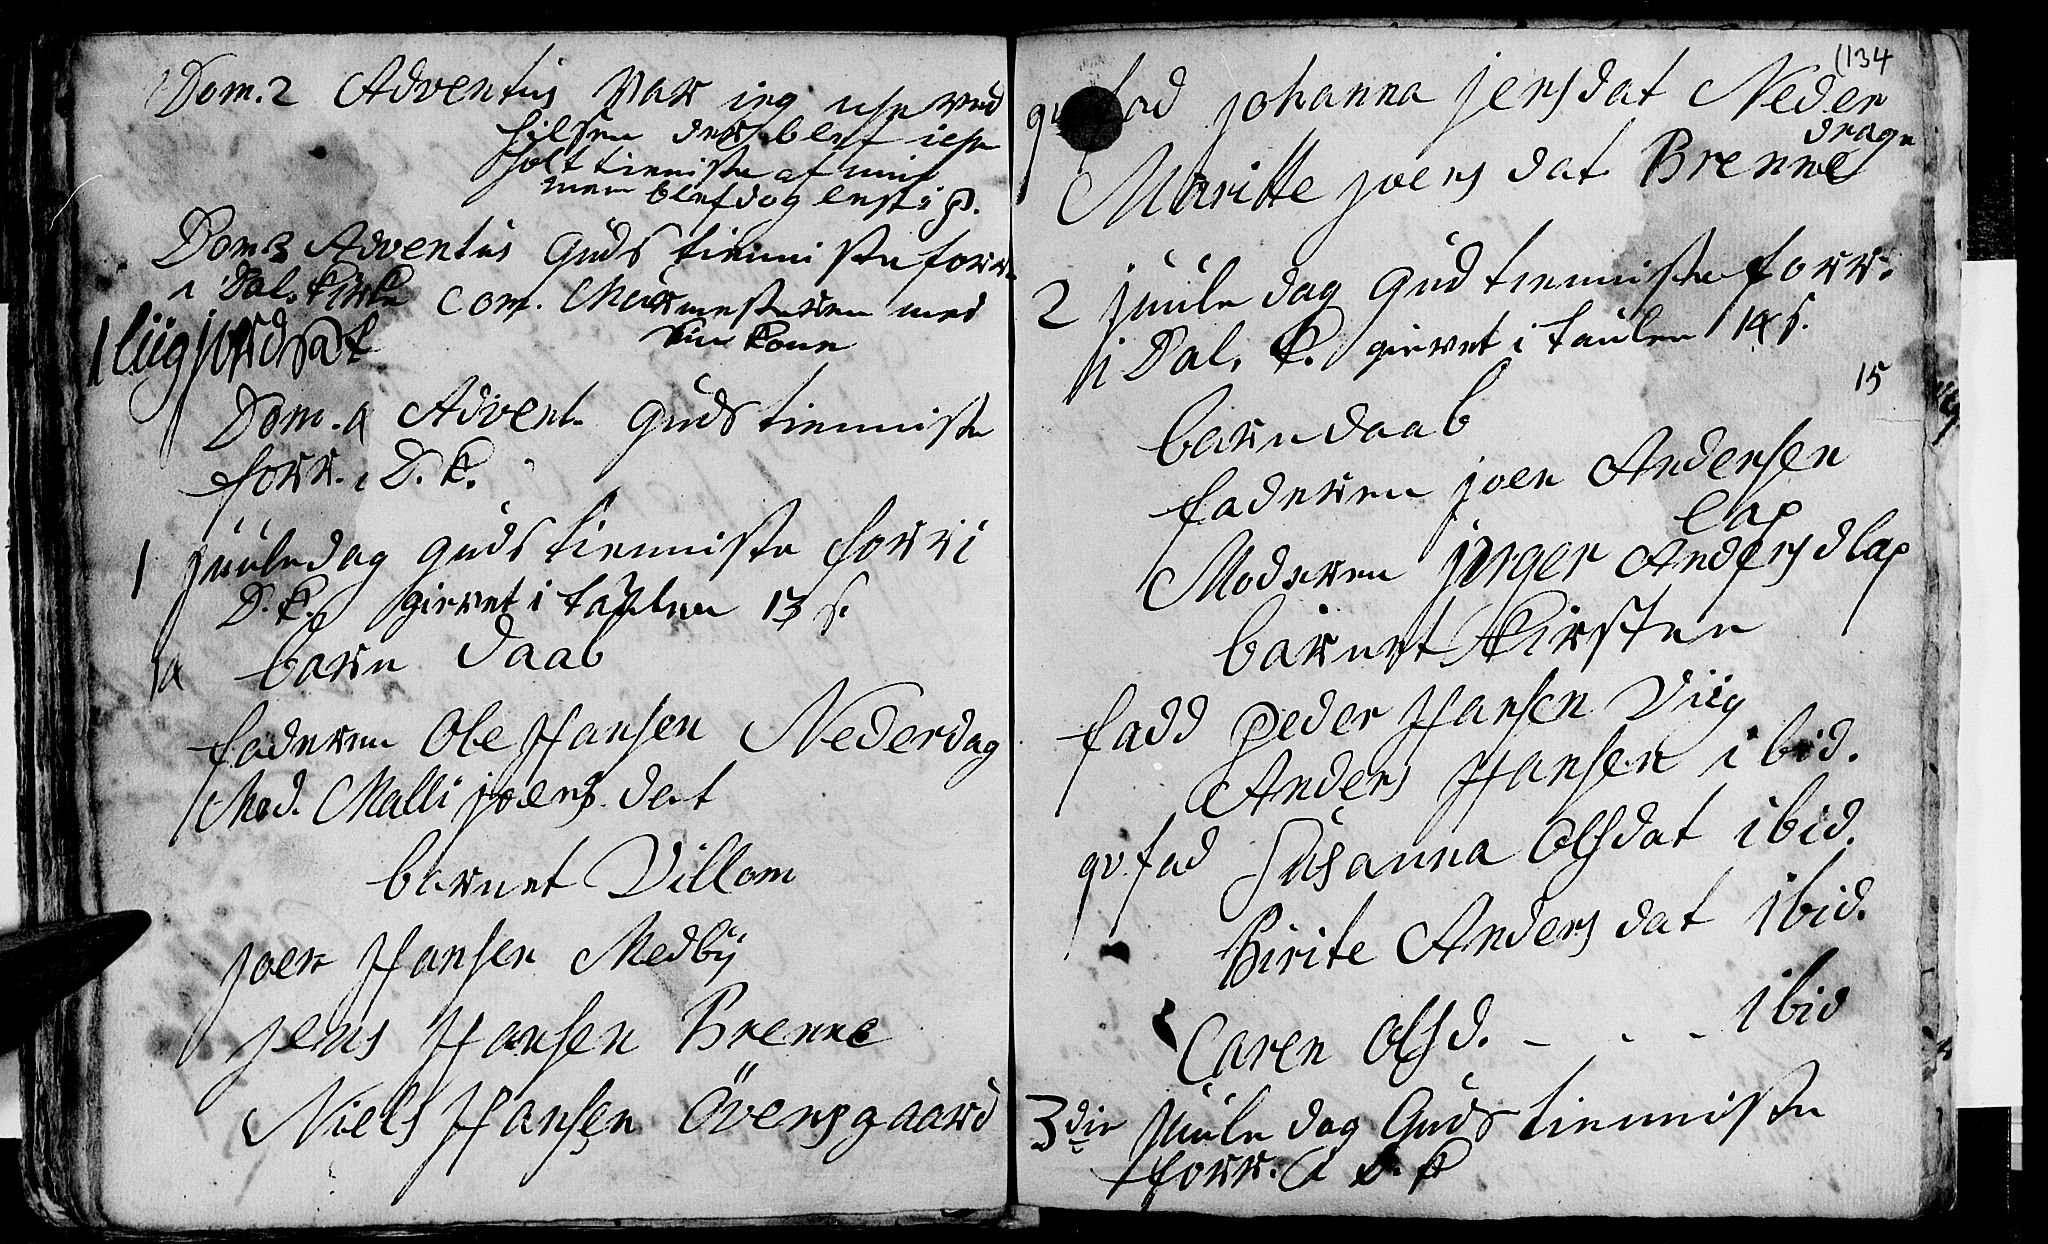 Dom. 2 Adventus var ieg
blef ieg
holt tienniste af mig
men blef dog lest i
Dom 3 Adventus Guds tienniste forr.
i Dal. Kirke com. Muurmesteren med
sin Kone
1 liig jordsat
Dom. 4 Advent. Guds tienniste
forr. i D. K.
1 juuledag Guds tienniste forr i
D. K. givet i taflen 13 s.
14 barn daab
faderen Ole Hansen Nederdag
Mod. Malli joers dat
barnet Villom
joen Hansen Medbÿ
jens Hansen Brenne
Niels Hansen Öwersgaard
(134
qv fad johanna jersdat Neder
drage
Maritte joers dat Brenne
2 juule dag Gud tienniste forr.
i Dal. K. givet i taulen 14 s.
15
barn daab
faderen joen Andersen
Lap
Moderen jnger Andersd lap
barnet Kirsten
fadd peder Hansen Viig
Anders Hansen ibid.
qv. fad Susanna Olsdat ibid.
Birite Anders dat ibid.
Caren Olsd. - - - ibid
3die juule dag Guds tienniste
forr. i D. K